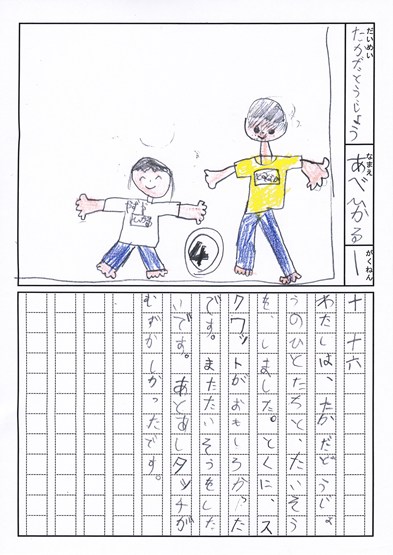 だいめい
たかだとうじょう
なまえ
あべひかる
がくねん
一
4
十 十六
わたしは、たかだどうじょ
うのひとたちと、たいそう
を、しました。とくに、ス
クワットがおもしろかった
です。またたいそうをした
いです。あとあしタッチが
むずかしかったです。